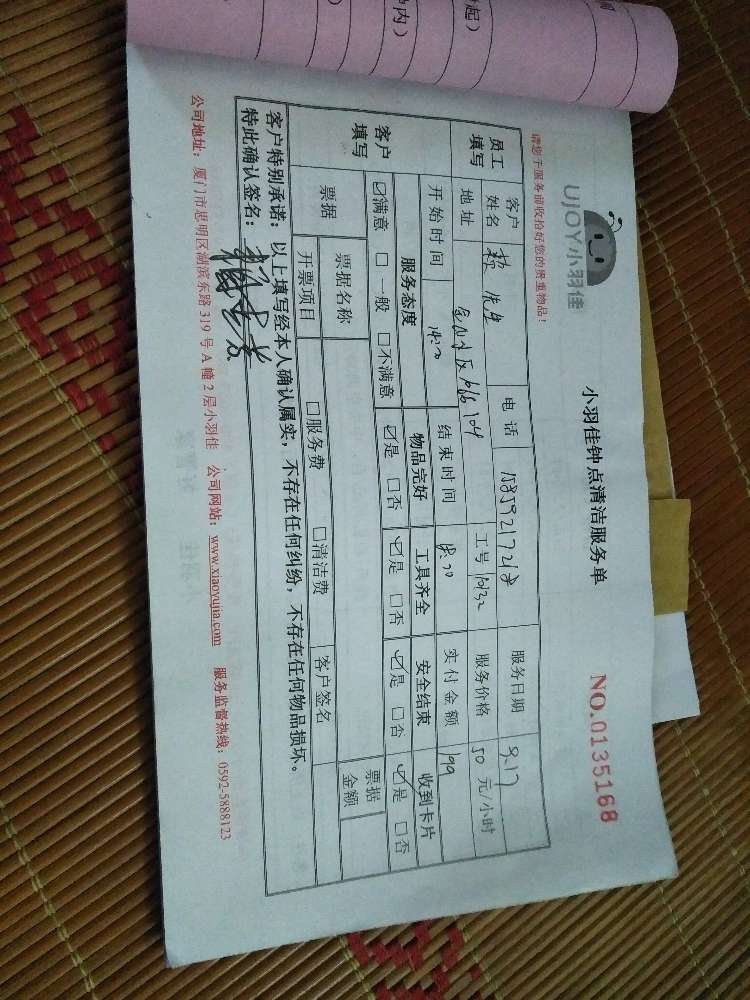 起）
内）
UJOY小羽佳
小羽佳钟点清洁服务单
NO.0135168
请您于服务前收拾好您的贵重物品！
员工填写
客户姓名 先生 电话 服务日期 9.17
地址 104 工号 1032 服务价格 50 元/小时
开始时间 14:20 结束时间 18:20 实付金额 199
客户填写
服务态度 物品完好 工具齐全 安全结束 收到卡片
☑满意 □一般 □不满意 ☑是 □否 ☑是 □否 ☑是 □否 ☑是 □否
票据 票据名称 票据金额
开票项目 □服务费 □清洁费 客户签名
客户特别承诺：以上填写经本人确认属实，不存在任何纠纷，不存在任何物品损坏。
特此确认签名：
公司地址：厦门市思明区湖滨东路 319 号 A 幢 2 层小羽佳 公司网站：www.xiaoyujia.com 服务监督热线：0592-5888123